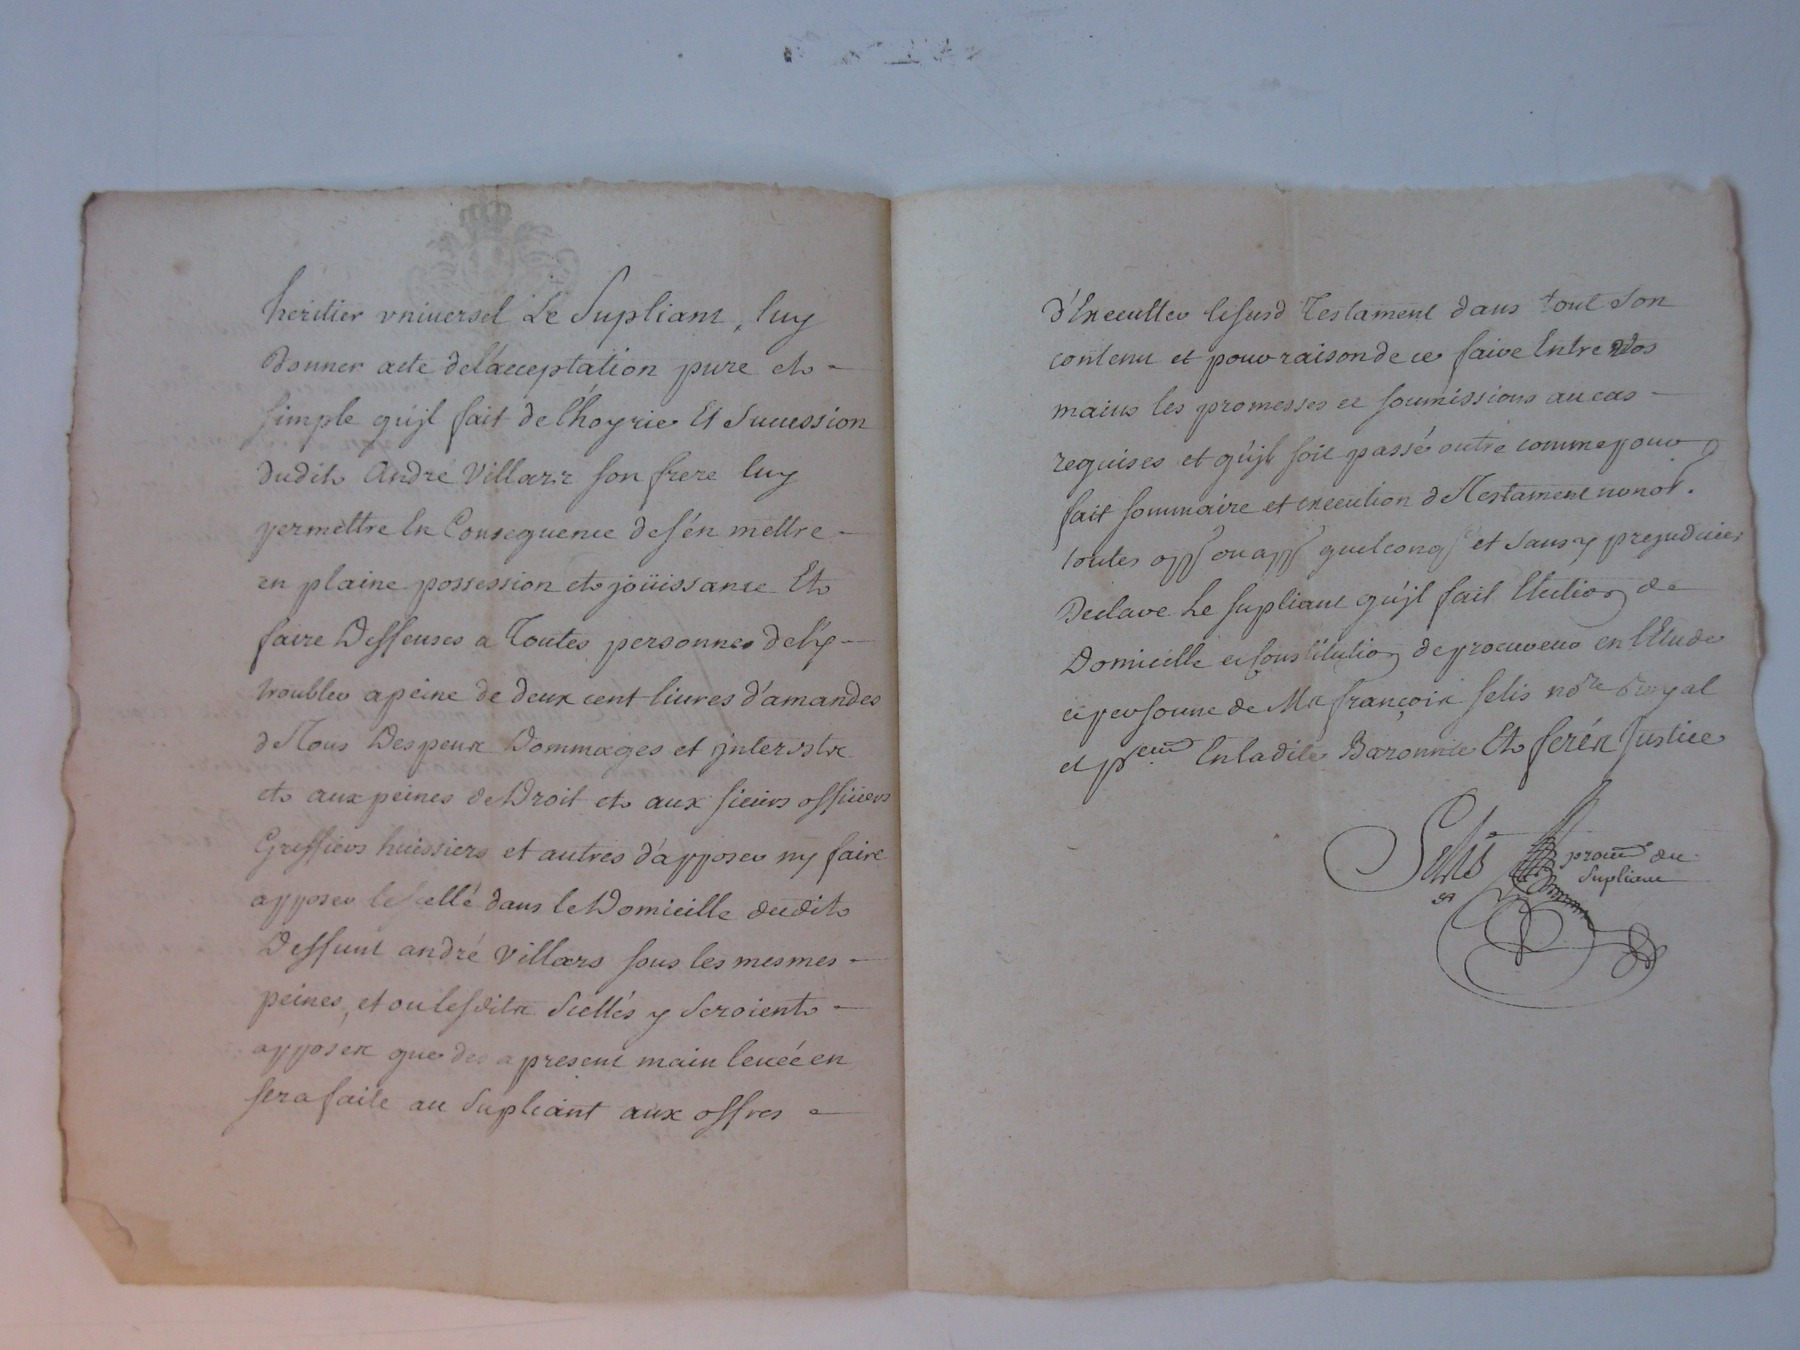 heritier vniuersel Le Supliant, luy
donner acte de l'acceptation pure et
simple qu'jl fait de l'hoyrie Et Sucession
dudit André Villars son frere luy
permettre En Consequence de s'én mettre
en plaine possession et joüissance Et
faire Deffenses a Toutes personnes de l'y
troubler a peine de deux cent liures d'amandes
de Tous Despeux Dommages et jnterests
et aux peines de Droit et aux sieurs officiers
Greffiers huissiers et autres d'apposer ny faire
apposer le scellé dans le Domicille dudit
Deffunt andré Villars sous les mesmes
peines, et ou lesdits Scellés y Seroient
apposex que des a present main leuée en
sera faite au Supliant aux offres
d'Executter le susd Testament dans tout Son
contenu et pour raison de ce faire Entre Vos
mains les promesses et soumissions au cas
requises et qu'jl soit passé outre comme pour
fait sommaire et execution de Testament nonot.
toutes opp ou app quelconq et sans y prejudicier
Declare Le supliant qu'jl fait Election de
Domicille et Constitution de procureur en l'Etude
et personne de Mr françois selis nore Royal
et preur En la dite Baronnie Et ferés Justice
Selis procur du
Supliant